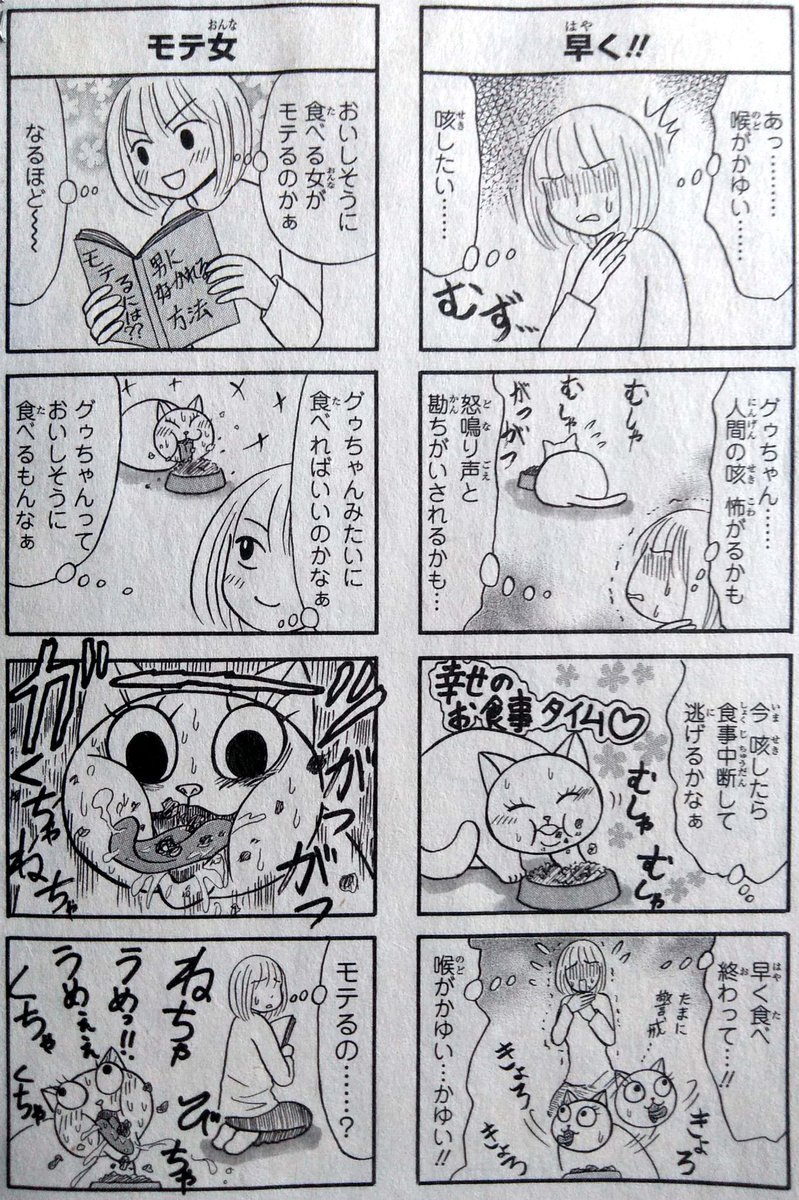 早く!!
あっ………
喉がかゆい……
咳したい……
むずっ…
グゥちゃん……
人間の咳 怖がるかも
怒鳴り声と
勘ちがいされるかも…
むしゃ
むしゃ
がつがつ
今 咳したら
食事中断して
逃げるかなぁ
幸せの
お食事タイム♡
むしゃ
むしゃ
早く食べ
終わって…!!
たまに
警戒…
喉がかゆい…かゆい!!
きょろ
きょろ
きょろ
モテ女
おいしそうに
食べる女が
モテるのかぁ
なるほど〜〜
男に
好かれる
方法
モテ
るには??
グゥちゃんみたいに
食べればいいのかなぁ
グゥちゃんって
おいしそうに
食べるもんなぁ
ガツ
がつがつ
くちゃ
ねちゃ
モテるの……?
ねちゃ
びちゃ
うめっ!!
うめぇぇ
くちゃ
くちゃ